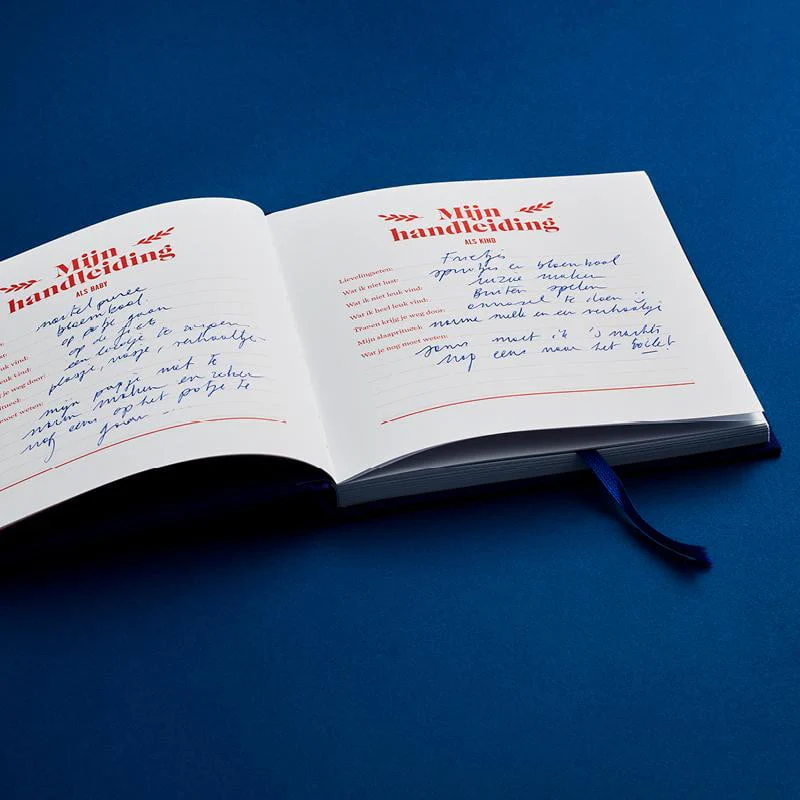 Mijn
handleiding
ALS BABY
wortelpuree
bloemkool
op potje gaan
op de fiets
leuk vind:
een liedje te zingen
leuk vind:
plasje, visje, verhaaltje
je weg door:
mijn papje niet te
warm maken en zeker
moet weten:
nog eens op het potje te
gaan
Mijn
handleiding
ALS KIND
Lievelingseten: Frietjes
Wat ik niet lust: spruitjes en bloemkool
Wat ik niet leuk vind: ruzie maken
Wat ik heel leuk vind: Buiten spelen
Tranen krijg je weg door: onnozel te doen
Mijn slaapritueel: warme melk en een verhaaltje
Wat je nog moet weten: soms moet ik 's nachts
nog eens naar het toilet!